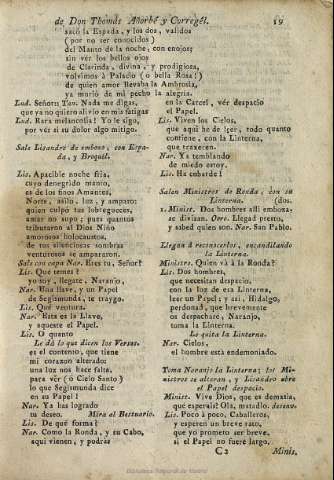 de Don Thomás Añorbe y Corregél. 19
sacó la Espada, y los dos, validos
(por no ser conocidos)
del Manto de la noche, con enojos;
sin ver los bellos ojos
de Clarinda, divina, y prodigiosa,
volvimos à Palacio (ò bella Rosa!)
de quien amor llevaba la Ambrosía,
ya murió de mi pecho la alegria.
Lud. Señorita Tan. Nada me digas,
que ya no quiero alivio en mis fatigas
Lud. Rara melancolía! Yo le sigo,
por vèr si su dolor algo mitigo.
Sale Lisandro de embozo, con Espa-
da, y Broquèl.
Lis. Apacible noche fria,
cuyo denegrido manto,
es de los finos Amantes,
Norte, asilo, luz, y amparo:
quien culpò tus lobregueces,
amar no supo; pues quantos
tributaron al Dios Niño
amorosos holocaustos,
de tus silenciosas sombras
venturosos se ampararon.
Sale con capa Nar. Eres tu, Señor?
Lis. Què temes?
yo soy, llegate, Naranjo,
Nar. Una Llave, y un Papel
de Segismunda, te traygo.
Lis. Què ventura.
Nar. Esta es la Llave,
y aqueste el Papel.
Lis. O quanto
Le dà lo que dicen los Versos.
es el contento, que tiene
mi corazon alterado:
una luz nos hace falta,
para vèr (ò Cielo Santo)
lo que Segismunda dice
en su Papel!
Nar. Ya has logrado
tu deseo. Mira al Bestuario.
Lis. De què forma?
Nar. Como la Ronda, y su Cabo,
aqui vienen, y podràs
en la Carcel, vèr despacio
el Papel.
Lis. Viven los Cielos,
que aqui he de leer, todo quanto
contiene, con la Linterna,
que traxeren.
Nar. Ya temblando
de miedo estoy.
Lis. Ha cobarde!
Salen Ministros de Ronda, con su
Linterna. (dos.
1. Minist. Dos hombres alli emboza-
se divisan. Otro. Llegad presto,
y sabed quien son. Nar. San Pablo.
Llegan à reconocerlos, encandilando
la Linterna.
Ministr. Quien và à la Ronda?
Lis. Dos hombres,
que necesitan despacio,
con la luz de esa Linterna,
leer un Papel; y asi, Hidalgo,
perdonad, que brevemente
os despachare, Naranjo,
toma la Linterna.
Le quita la Linterna.
Nar. Cielos,
el hombre està endemoniado.
Toma Naranjo la Linterna; los Mi-
nistros se alteran, y Lisandro abre
el Papel despacio.
Minist. Vive Dios, que es demasia,
què esperais? Ola, matadlo.
Lis. Poco à poco, Caballeros,
y esperen un breve rato,
que yo prometo ser breve,
si el Papel no fuere largo.
C2 Minis.
Biblioteca Regional de Madrid